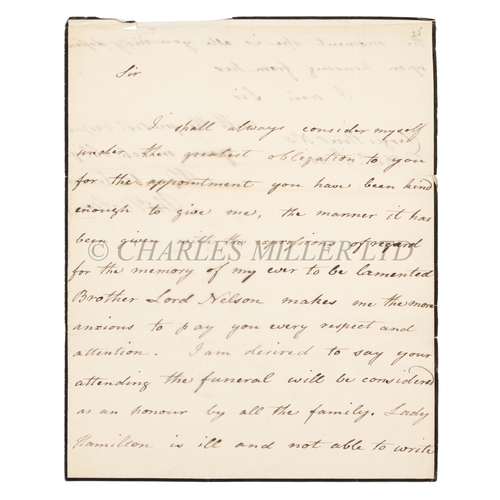 Sir
I shall always consider myself
under the greatest obligation to you
for the appointment you have been kind
enough to give me, the manner it has
been given with the expressions of regard
© CHARLES MILLER LTD
for the memory of my ever to be lamented
Brother Lord Nelson makes me the more
anxious to pay you every respect and
attention. I am desired to say your
attending the funeral will be considered
as an honour by all the family. Lady
Hamilton is ill and not able to write